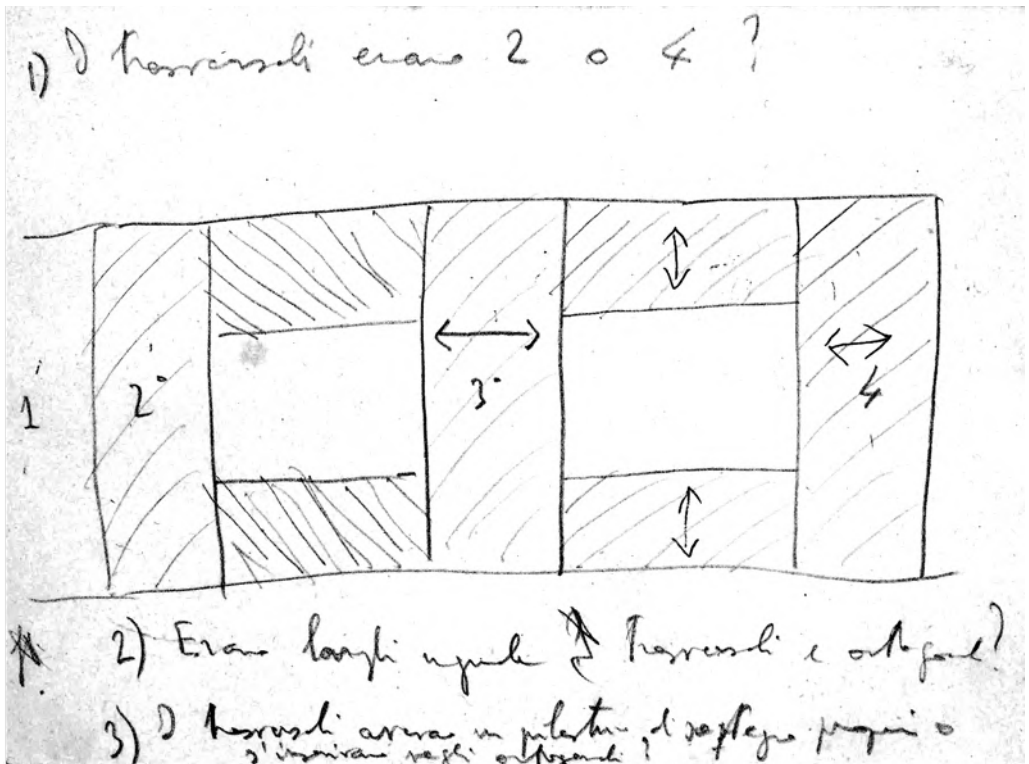 1) I trasversali erano 2 o 4 ?
1 2° 3° 4
2) Erano larghi uguale trasversali e ortogonali?
3) I trasversali avevano pilastrini di sostegno propri o
s'inserivano negli ortogonali?